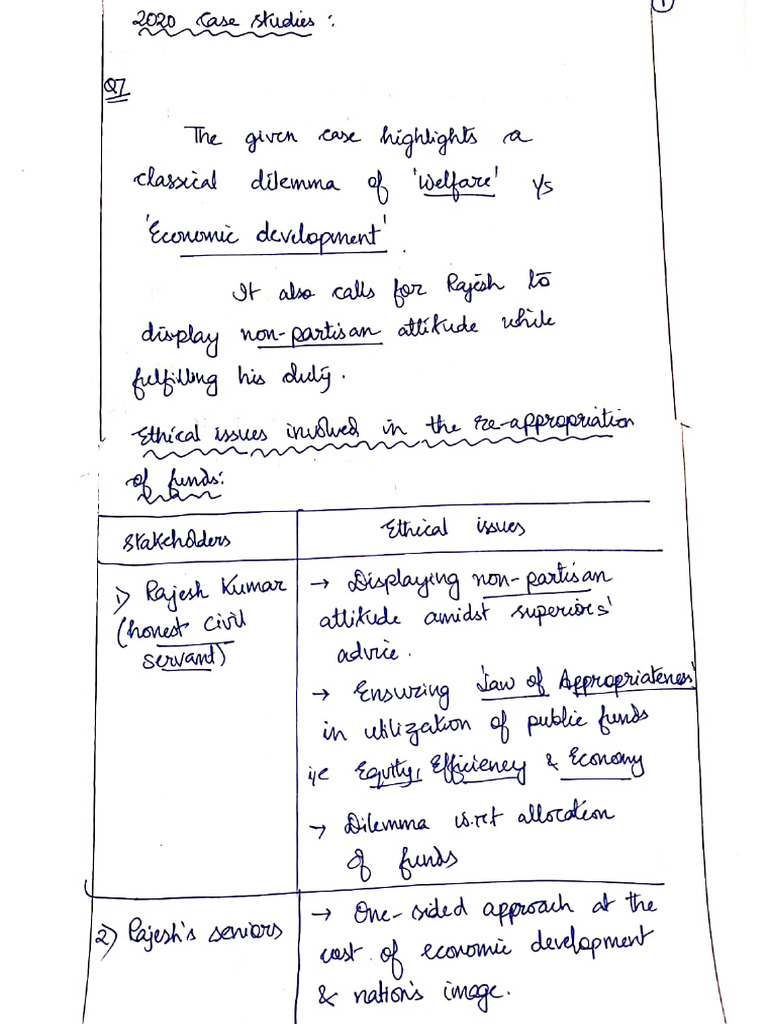 1
2020 Case studies :
Q7
The given case highlights a
classical dilemma of 'Welfare' v/s
'Economic development'.
It also calls for Rajesh to
display non-partisan attitude while
fulfilling his duty.
Ethical issues involved in the re-appropriation
of funds:
Stakeholders
Ethical issues
1) Rajesh Kumar
(honest civil
servant)
→ Displaying non-partisan
attitude amidst superiors'
advice.
→ Ensuring 'Law of Appropriateness'
in utilization of public funds
i/e Equity, Efficiency & Economy
→ Dilemma w.r.t allocation
of funds
2) Rajesh's seniors
→ One-sided approach at the
cost of economic development
& nation's image.